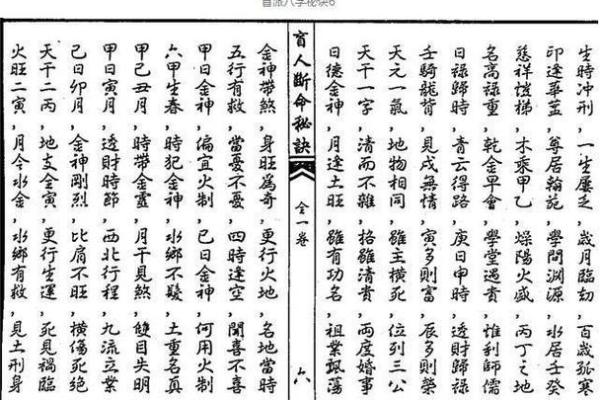 盲派八字秘诀6
生時冲刑，一生屢乏，歲月臨劫，百歲孤寒
印逢華蓋，尊居翰苑，學問淵源，水居壬癸
慈祥愷悌，木乘甲乙，燥陽火盛，丙丁之地
名高祿重，乾金早會，學堂遇貴，惟利師儒
日祿歸時，青云得路，庚日申時，透財歸祿
壬騎龍背，見戌無情，寅多則富，辰多則榮
天元一氣，地物相同，雖主橫死，位列三公
天干一字，清而不雜，格雖清貴，兩度婚事
日德金神，月逢土旺，雖有功名，祖業飄蕩
盲人斷命秘訣 全一卷 六
金神帶煞，身旺爲奇，更行火地，名地當時
五行有救，當憂不憂，四時逢空，聞喜不喜
甲日金神，偏宜火制，己日金神，何用火制
六甲生春，時犯金神，水鄉不發，土重名真
甲己丑月，時帶金靈，月干見煞，雙目失明
甲日寅月，透財時節，西北行程，九流立業
己日卯月，金神剛烈，比肩不旺，橫傷死絕
天干二丙，地支全寅，更行生運，死見禍臨
火旺二寅，月令水金，水鄉有救，見土刑身